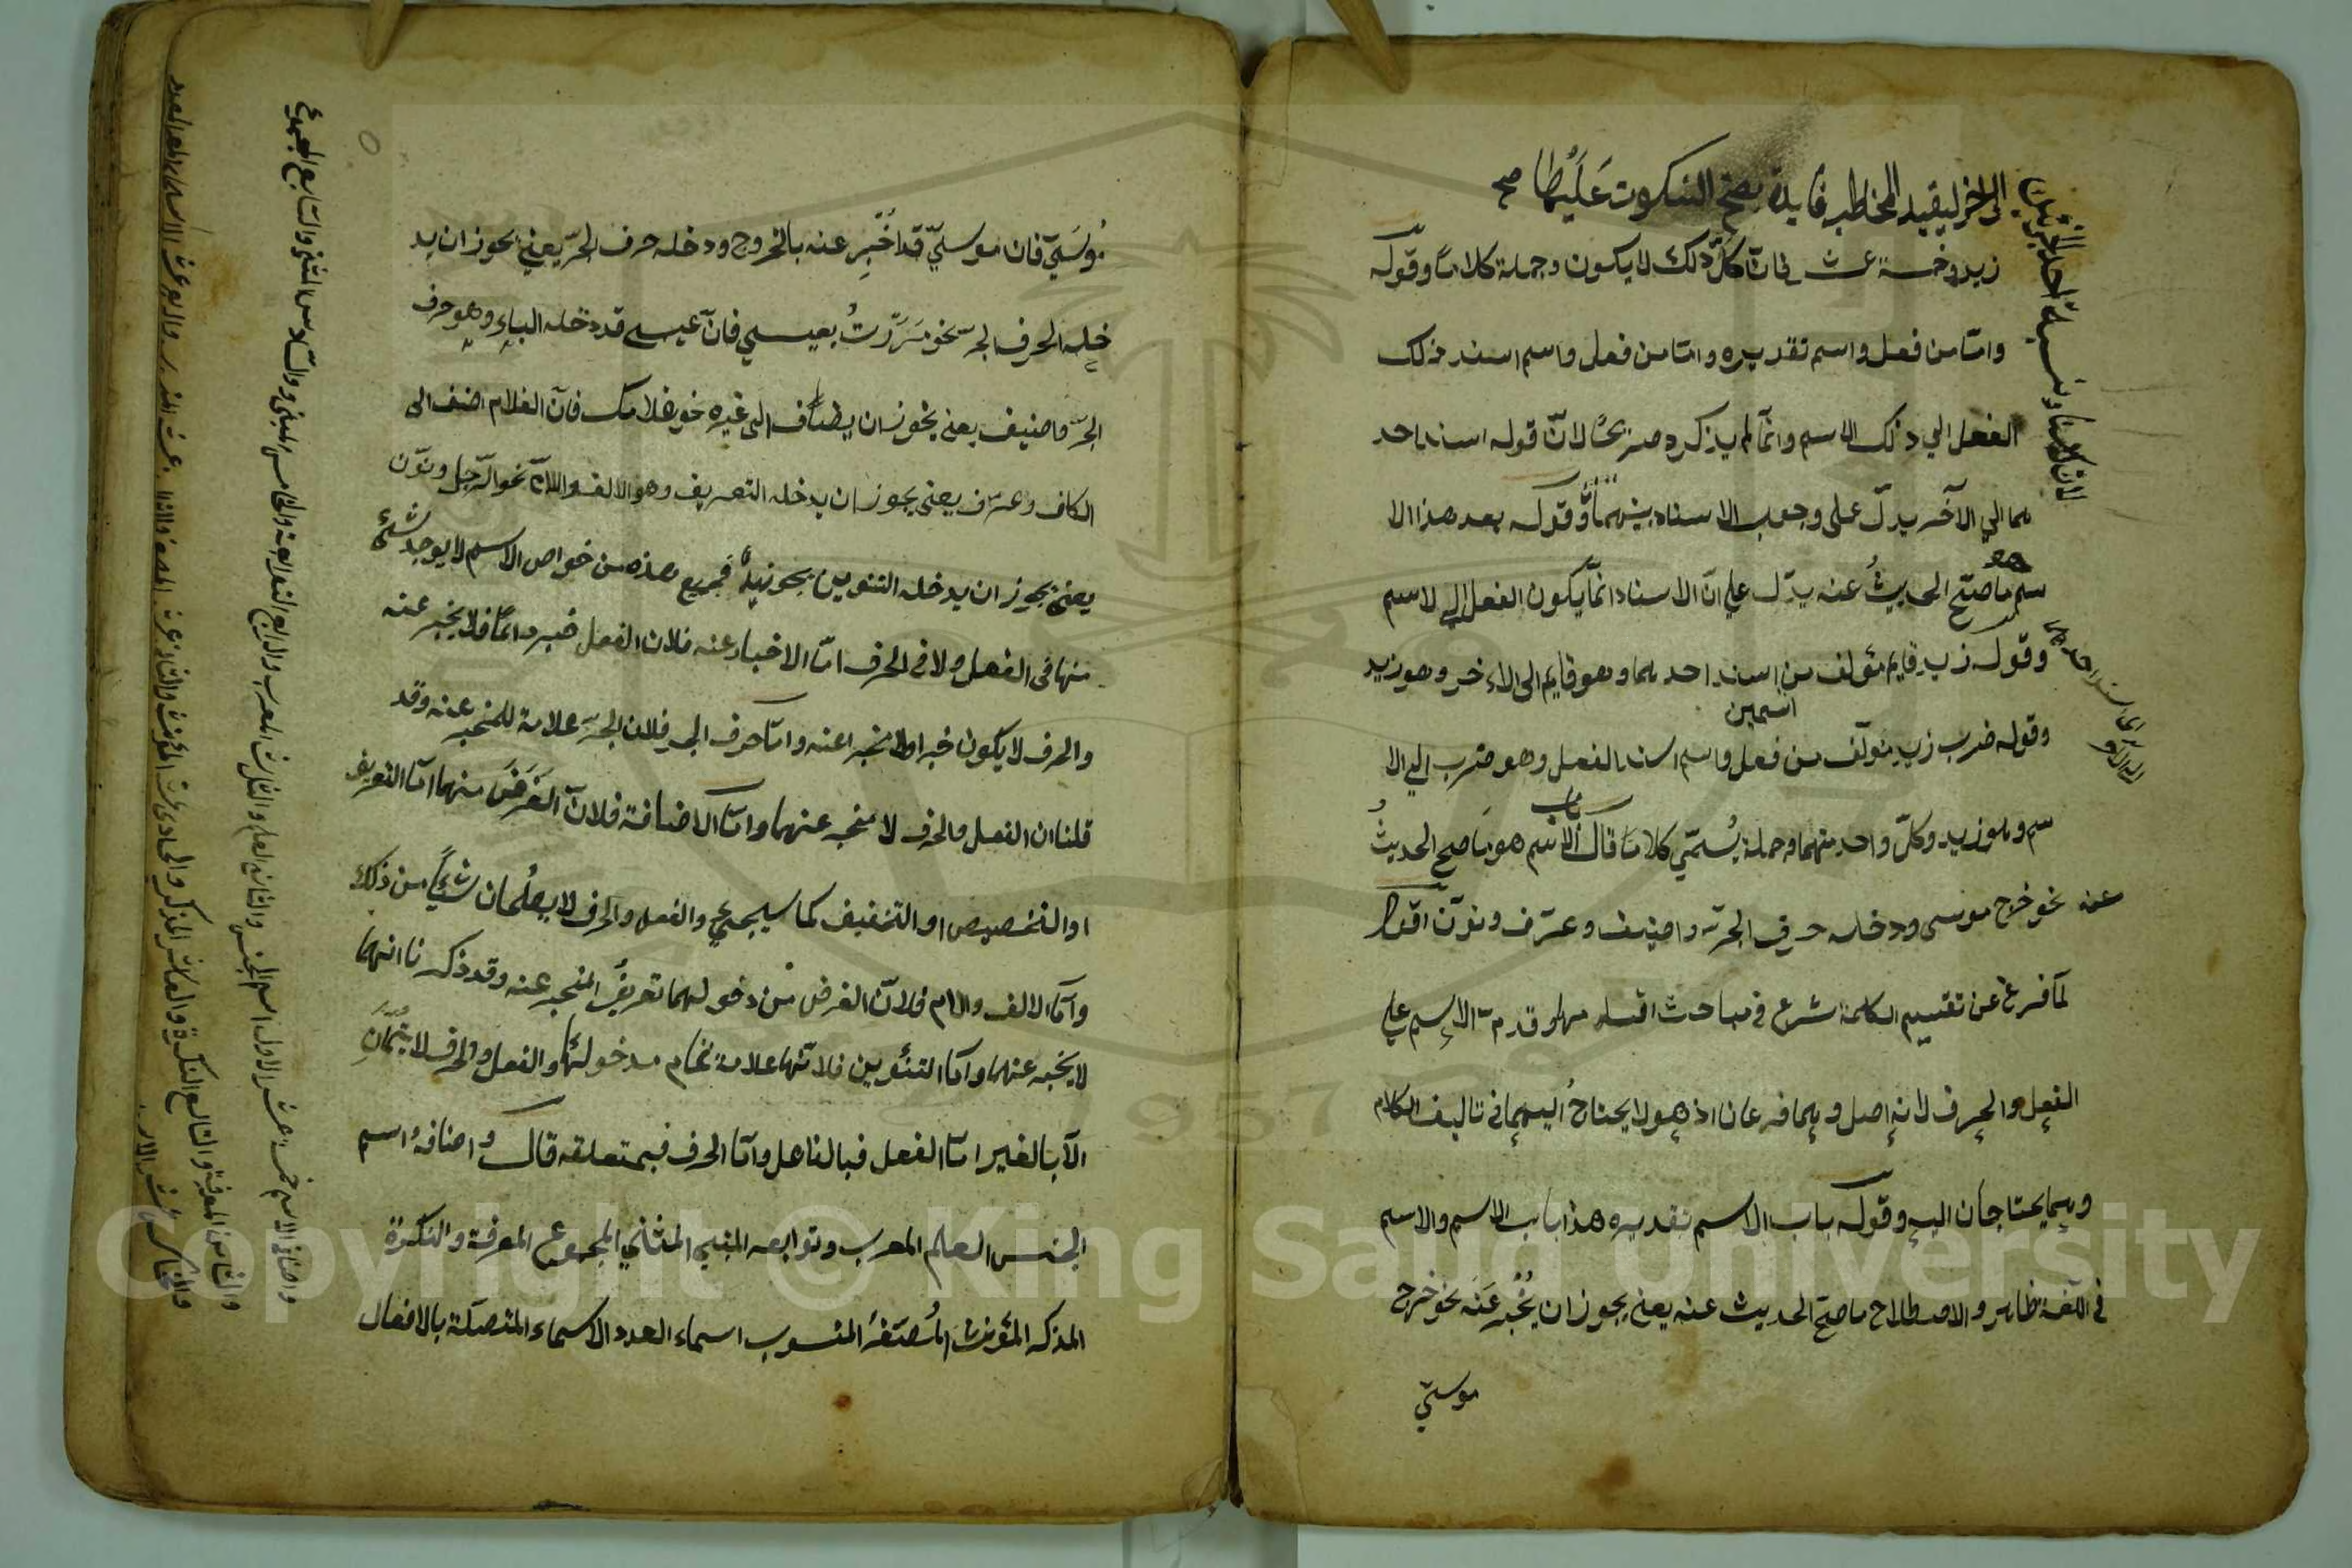 لان كلامنا ونسبة احد الجزئين
الى الاخر ليفيد المخاطب فايدة يصح السكوت عليها صح
زيد وخمسة عشر فانّ كلّ ذلك لا يكون وجملة كلاماً وقوله
وامّا من فعل واسم تقديره وامّا من فعل واسم اسند ذلك
الفعل الي ذلك الاسم وانّما لم يذكره صريحًا لانّ قوله اسند احد
هما الي الآخر يدلّ على وجوب الاسناد بينهما وقوله بعد هذا الا
سم ما صحّ الحديثُ عنه يدلّ علي انّ الاسناد انّما يكون الفعل الي الاسم
وقوله زيد قايم مؤلف من اسند احدهما وهو قايم الى الاخر وهو زيد
اسمين
وقوله ضرب زيد مؤلّف من فعل واسم اسند الفعل وهو ضرب الي الا
سم وهو زيد وكلّ واحد منهما وجملة يُسمّي كلاما قال باب الاسم هو ما صح الحديثُ
عنه نحو خرج موسى ودخله حرف الجرّ واضيف وعرّف ونوّن اقول
لمّا فرغ عن تقسيم الكلمة شرع في مباحث اقسامها وقدم الاسم علي
الفعل والحرف لانه اصل وهما فرعان اذ هو لا يحتاج اليهما في تاليف الكلام
وهما يحتاجان اليه وقوله باب الاسم تقديره هذا باب الاسم والاسم
في اللغة ظاهر والاصطلاح ما صحّ الحديث عنه يعني يجوز ان يُخبر عنه نحو خرج
موسيّ
مُوسَيّ فان موسيّ قد اُخبِر عنه بالخروج ودخله حرف الجرّ يعني يجوز ان يد
خله الحرف الجرّ نحو مَرَرتُ بعيسي فانّ عيسي قد دخله الباء وهو حرف
الجرّ واضيف يعني يجوز ان يضاف الى غيره نحو غلامك فانّ الغلام اضف الى
الكاف وعرّف يعني يجوز ان يدخله التعريف وهو الالف واللام نحو الرّجل ونوّن
يعني يجوز ان يدخله التنوين نحو زيدٌ فجميع هذه من خواص الاسم لا يوجد شئ
منها في الفعل ولا في الحرف امّا الاخبار عنه فلان الفعل خبر دائمًا فلا يخبر عنه
والحرف لا يكون خبرا ولا مخبرا عنه وامّا حرف الجر فلان الجرّ علامة للمخبر عنه وقد
قلنا ان الفعل والحرف لا مخبر عنهما وامّا الاضافة فلانّ الغَرَضَ منها امّا التعريف
او التخصيص او التخفيف كما سيجيئ والفعل والحرف لا يصلُحان شئيًا من ذلك
وامّا الالف واللام فلانّ الغرض من دخولهما تعريفُ المخبر عنه وقد ذكرنا انهما
لا يخبر عنهما وامّا التنوين فلانّها علامة تمام مدخولها والفعل والحرف لا يتمّان
الّا بالغير امّا الفعل فبالفاعل وامّا الحرف فبمتعلقه قال واصنافه اسم
الجنس العلم المعرب وتوابعه المبني المثنّي المجموع المعرفة والنكرة
المذكر المؤنث المُصَغّر المنسوب اسماء العدد الاسماء المتصلة بالافعال
واصناف الاسم خمسة عشر الاول اسم الجنس والثاني العلم والثالث المعرب والرابع التوابعه والخامس المبني والسادس المثنى والسابع المجموع
والثامن المعرفة والتاسع النكرة والعاشر المذكر والحادي عشر المؤنث والثاني عشر المصغر